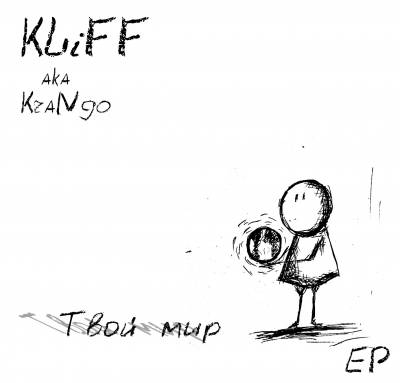 KLiFF
aka
KraNgo
Твой мир
EP